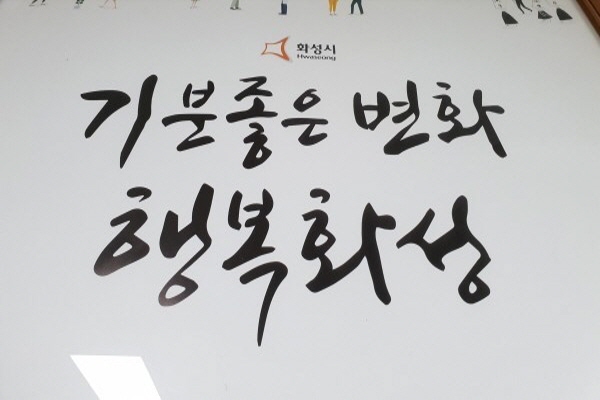 화성시
Hwaseong
기분좋은 변화
행복화성